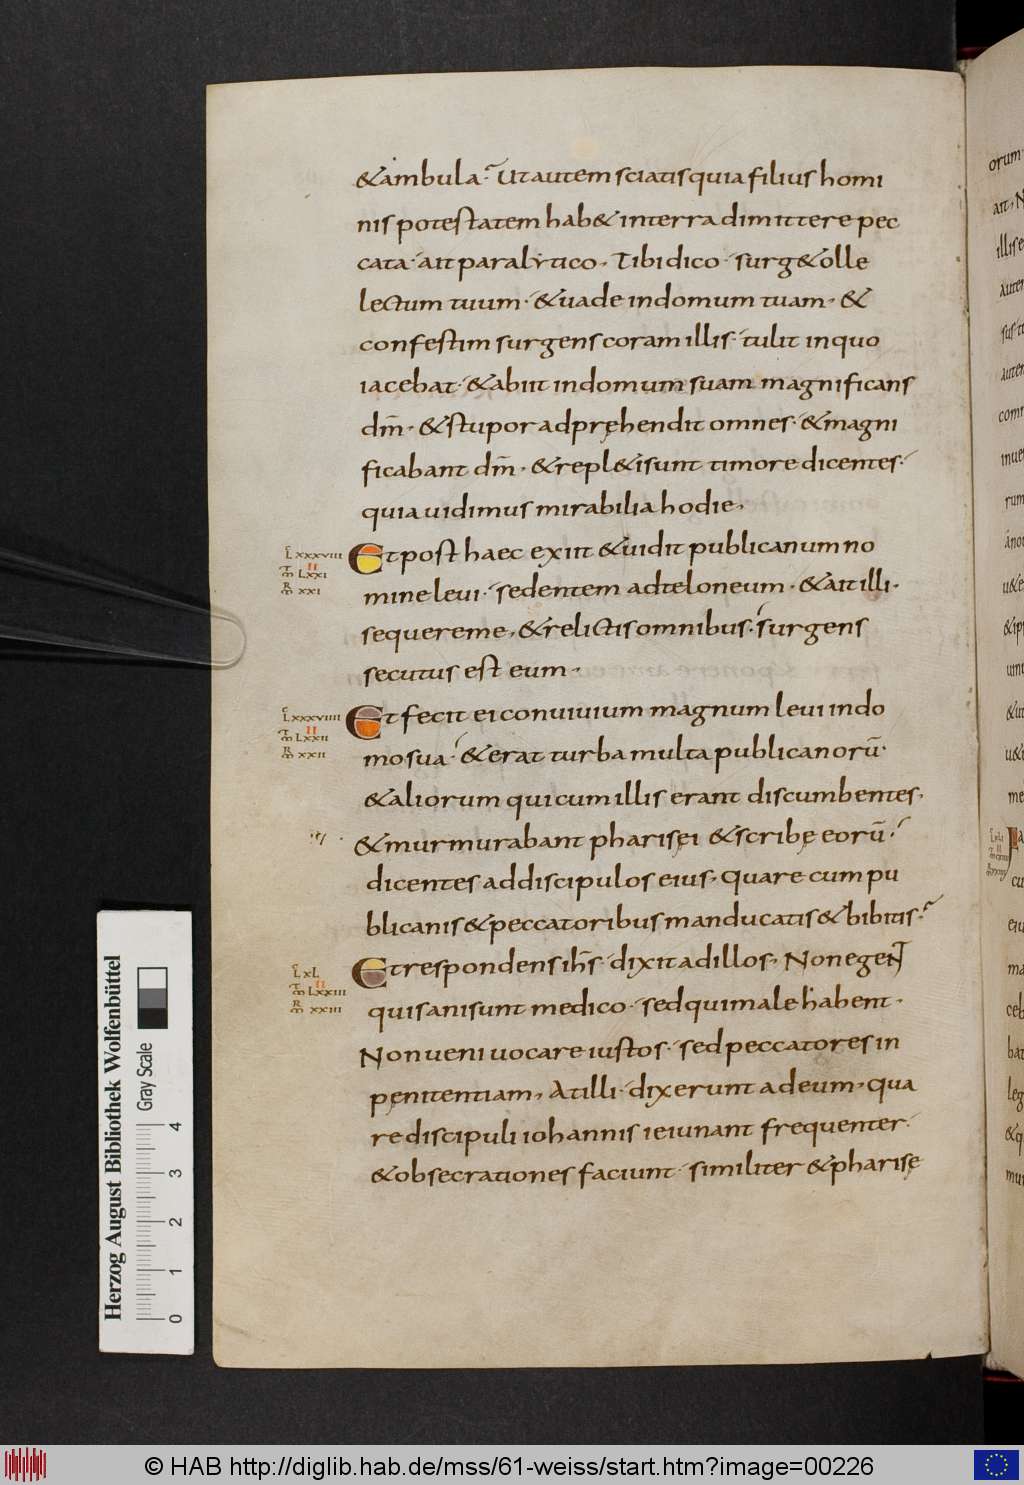 &ambula· Ut autem sciatis quia filius homi
nis potestatem hab& in terra dimittere pec
cata· ait paralytico, Tibi dico· surg& olle
lectum tuum· &uade in domum tuam, &
confestim surgens coram illis· tulit in quo
iacebat· &abiit in domum suam magnificans
dm̄· &stupor adpręhendit omnes· &magni
ficabant dm̄· &repl&i sunt timore dicentes·
quia uidimus mirabilia hodie,
Et post haec exiit &uidit publicanum no
mine leui· sedentem ad teloneum· &ait illi·
sequere me, &relictis omnibus· surgens
secutus est eum·
Et fecit ei conuiuium magnum leui in do
mo sua· &erat turba multa publicanorū·
&aliorum qui cum illis erant discumbentes,
&murmurabant pharisęi &scribę eorū·
dicentes ad discipulos eius, quare cum pu
blicanis &peccatoribus manducatis &bibitis·
Et respondens ih̄s dixit ad illos, Non egeNT
qui sani sunt medico· sed qui male habent·
Non ueni uocare iustos· sed peccatores in
pęnitentiam, At illi dixerunt ad eum, qua
re discipuli iohannis ieiunant frequenter·
&obsecrationes faciunt· similiter &pharisę
LXXXVIII
II
LXXI
XXI
LXXXVIIII
II
LXXII
XXII
LXL
II
LXXIII
XXIII
Herzog August Bibliothek Wolfenbüttel
Gray Scale
0 1 2 3 4
© HAB http://diglib.hab.de/mss/61-weiss/start.htm?image=00226